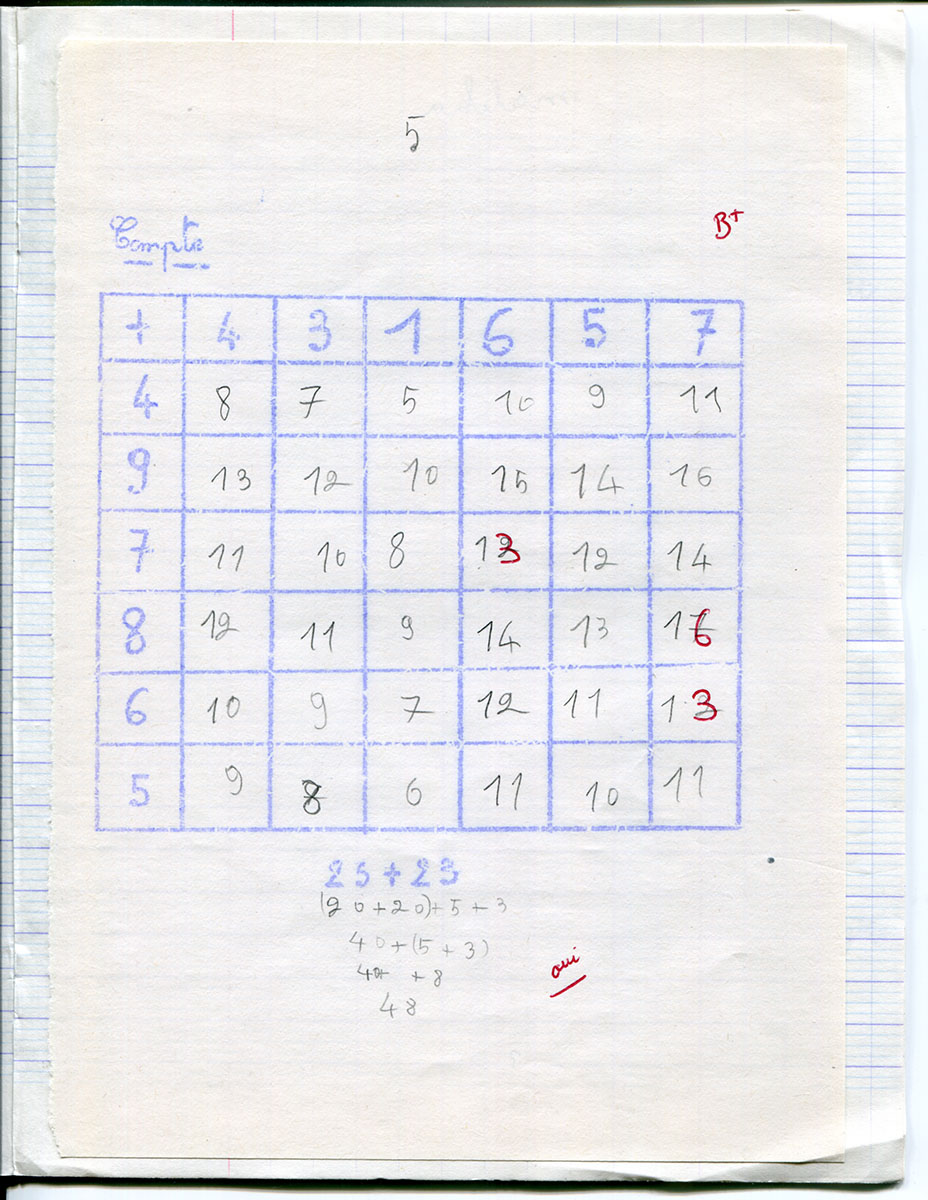 5
B+
Compte
+ 4 3 1 6 5 7
4 8 7 5 10 9 11
9 13 12 10 15 14 16
7 11 10 8 13 12 14
8 12 11 9 14 13 16
6 10 9 7 12 11 13
5 9 8 6 11 10 11
25+23
(20+20)+5+3
40+(5+3)
40 +8
48
oui